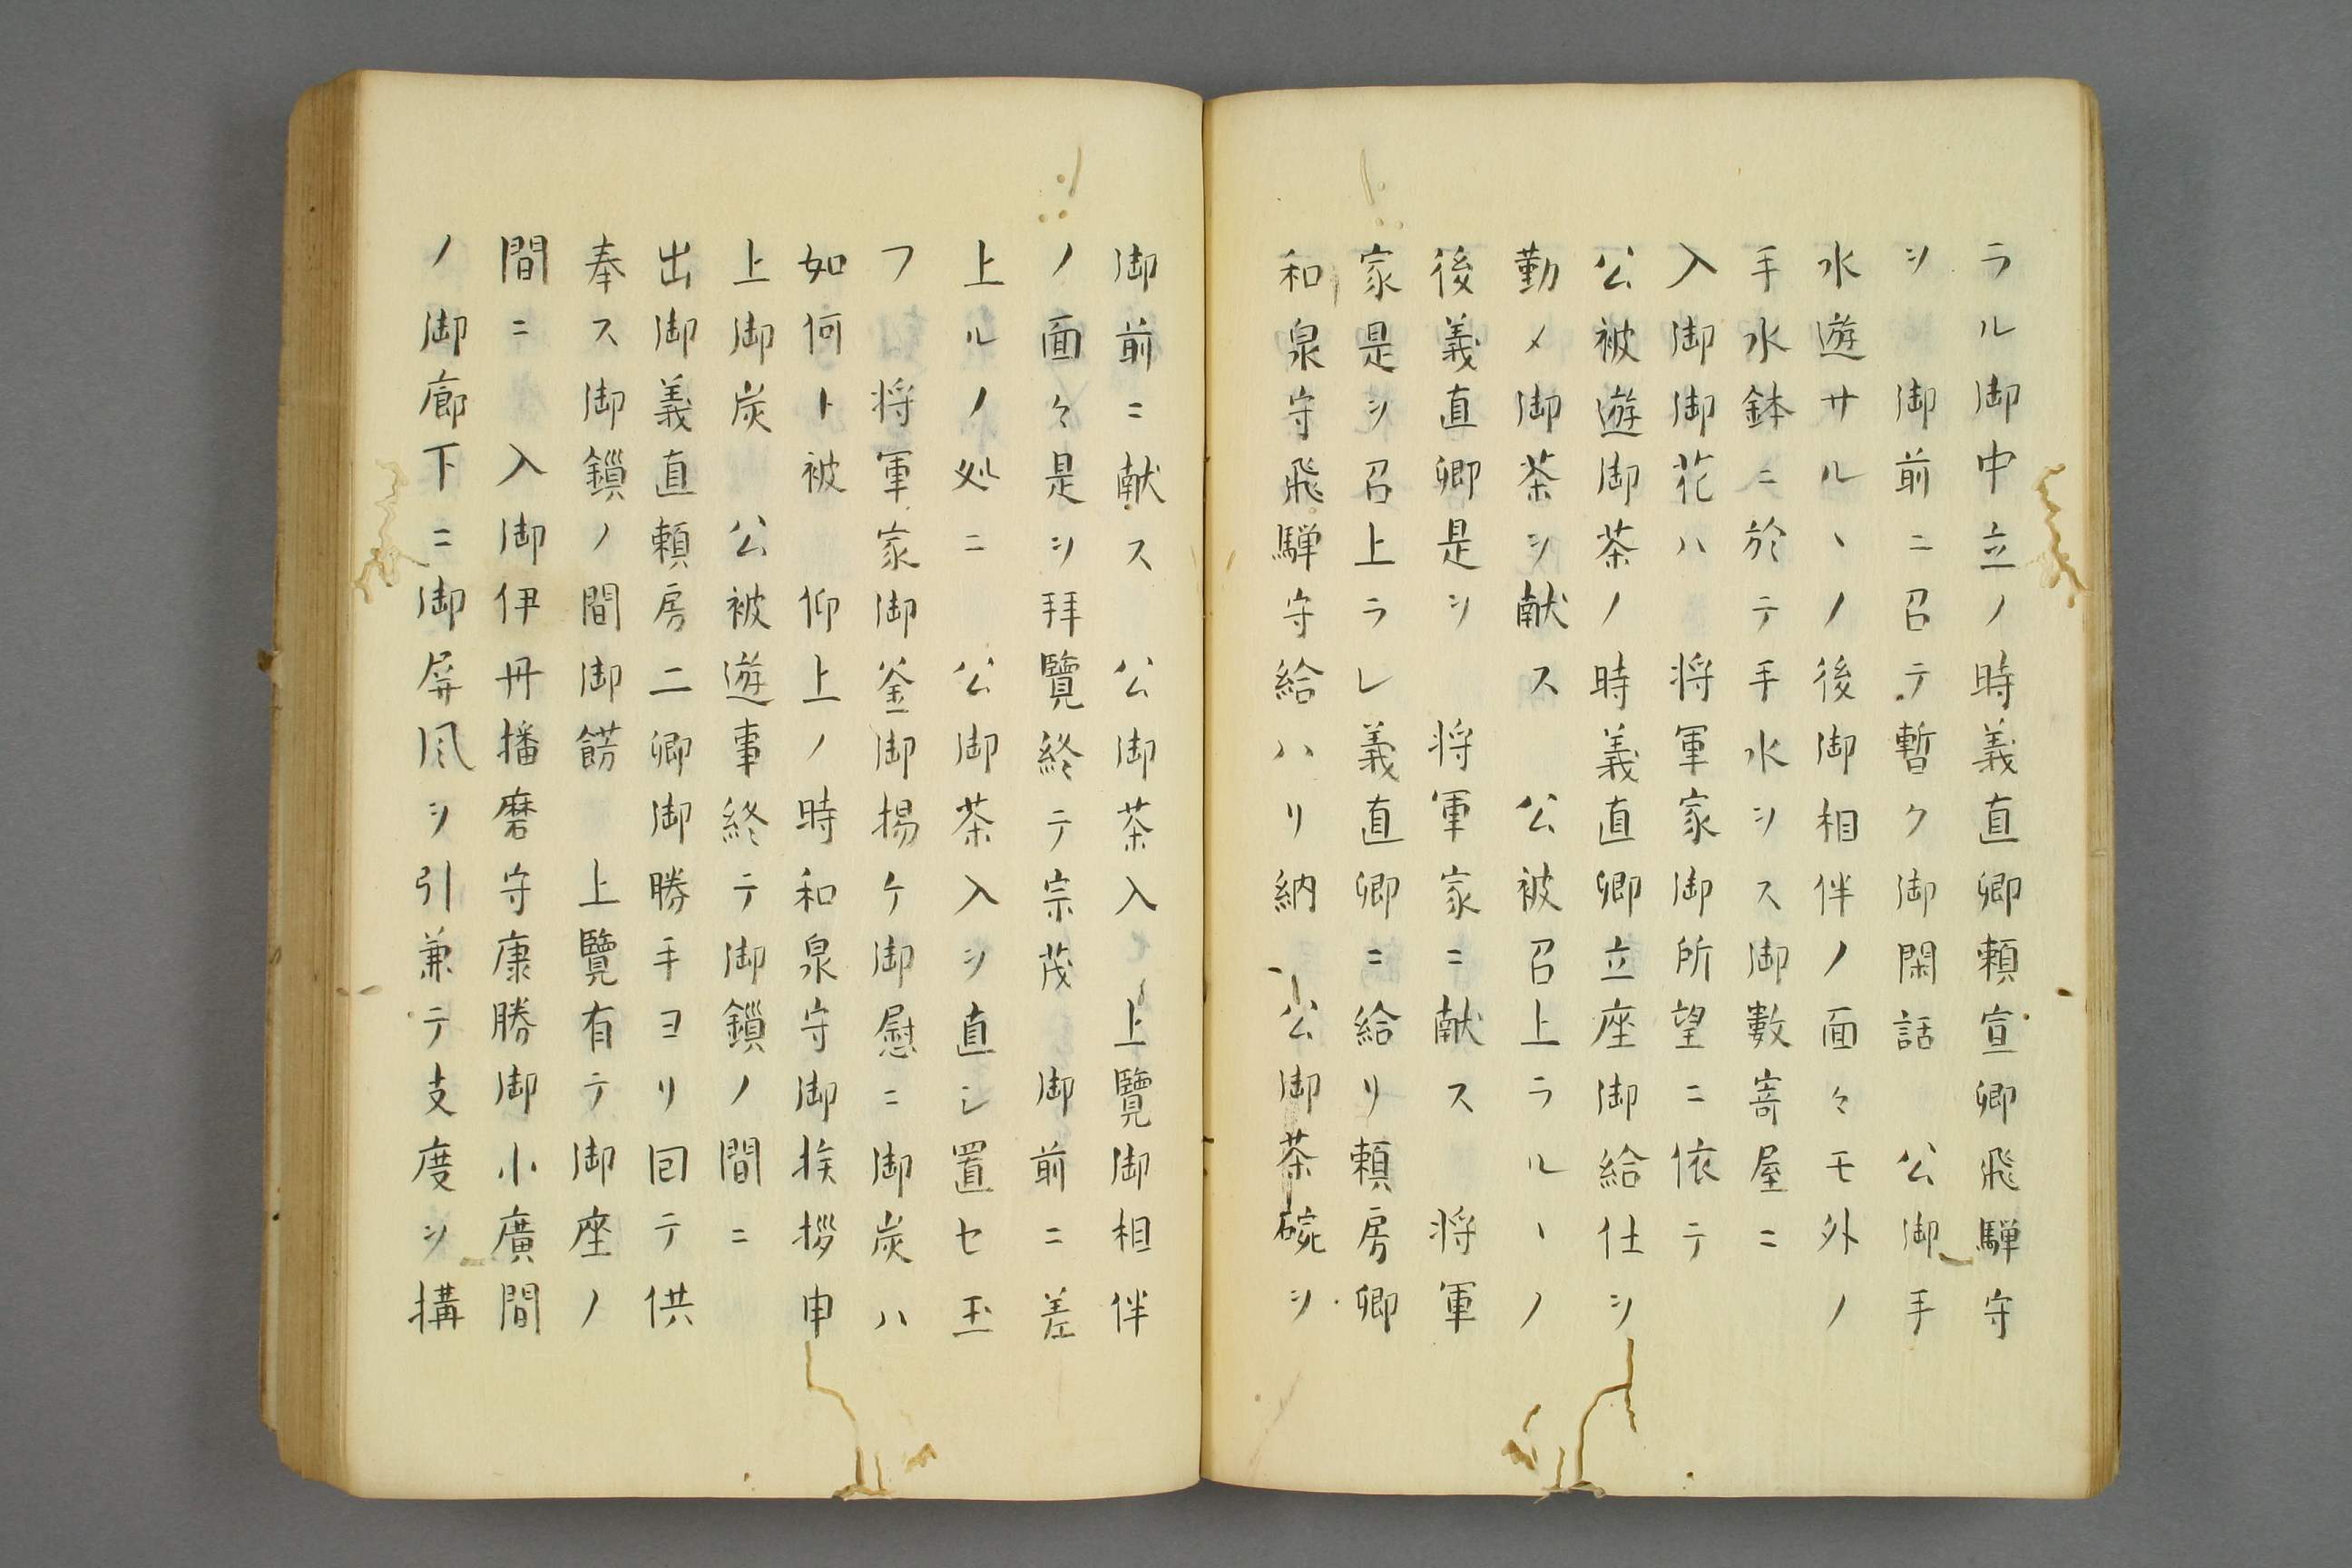 ラル御中立ノ時義直卿頼宣卿飛騨守
ヲ　御前ニ召テ暫ク御閑話　公御手
水遊サルヽノ後御相伴ノ面々モ外ノ
手水鉢ニ於テ手水ヲス御數寄屋ニ
入御御花ハ　将軍家御所望ニ依テ
公被遊御茶ノ時義直卿立座御給仕ヲ
勤メ御茶ヲ献ス　公被召上ラルヽノ
後義直卿是ヲ　将軍家ニ献ス　将軍
家是ヲ召上ラレ義直卿ニ給リ頼房卿
和泉守飛騨守給ハリ納　公御茶碗ヲ
御前ニ献ス　公御茶入　上覽御相伴
ノ面々是ヲ拜覽終テ宗茂　御前ニ差
上ルノ処ニ　公御茶入ヲ直シ置セ玉
フ　将軍家御釜御揚ケ御慰ニ御炭ハ
如何ト被　仰上ノ時和泉守御挨拶申
上御炭　公被遊事終テ御鎖ノ間ニ
出御義直頼房二卿御勝手ヨリ囘テ供
奉ス御鎖ノ間御餝　上覽有テ御座ノ
間ニ　入御伊丹播磨守康勝御小廣間
ノ御廊下ニ御屏風ヲ引兼テ支度ヲ搆